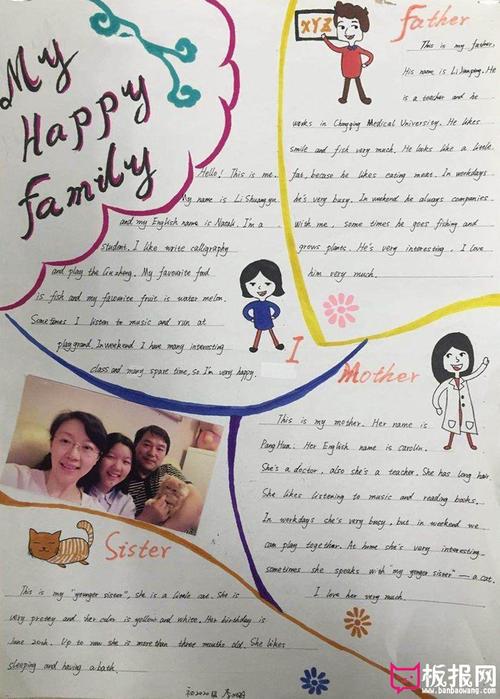 My
Happy
family
Hello! This is me.
My name is Li Shuangyu
and my English name is Natali. I'm a
student. I like write calligraphy
and play the Gu zheng. My favourite food
is fish and my favourite fruit is water melon.
Sometimes I listen to music and run at
playgrand. In weekend I have many interesting
class and many spare time, so I'm very happy.
I
XYZ
Father
This is my father.
His name is Li
He
is a teacher and he
works in Chongqing Medical University. He likes
smile and fish very much. He looks like a little
fat, because he likes eating meat. In workdays
he's very busy. In weekend he always companies
with me, some times he goes fishing and
grows plants. He's very interesting. I love
him very much.
Mother
This is my mother. Her name is
Pang Hua. Her English name is carolin.
She's a doctor, also she's a teacher. She has long hair
She likes listening to music and reading books.
In workdays she's very busy, but in weekend we
can play together. At home she's very interesting.
sometimes she speaks with "my yonger sister" — a cat.
I love her very much.
Sister
This is my "younger sister", she is a little cat. She is
very pretty and her color is yellow and white. Her birthday is
June 20th. Up to now she is more than three months old. She likes
sleeping and having a bath.
板报网
www.banbaowang.com